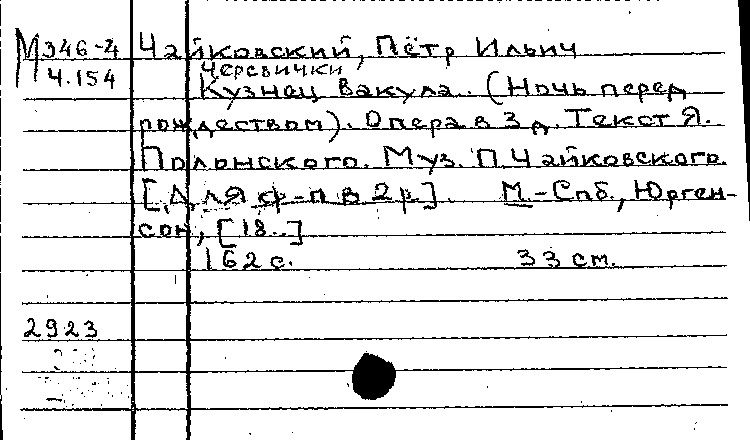 М346-4 Чайковский, Пётр Ильич
Ч.154 Черевички
Кузнец Вакула. (Ночь перед
рождеством). Опера в 3 д. Текст Я.
Полонского. Муз. П. Чайковского.
[Для ф-п в 2 р]. М.-Спб., Юрген-
сон, [18..]
162 с. 33 см.
2923